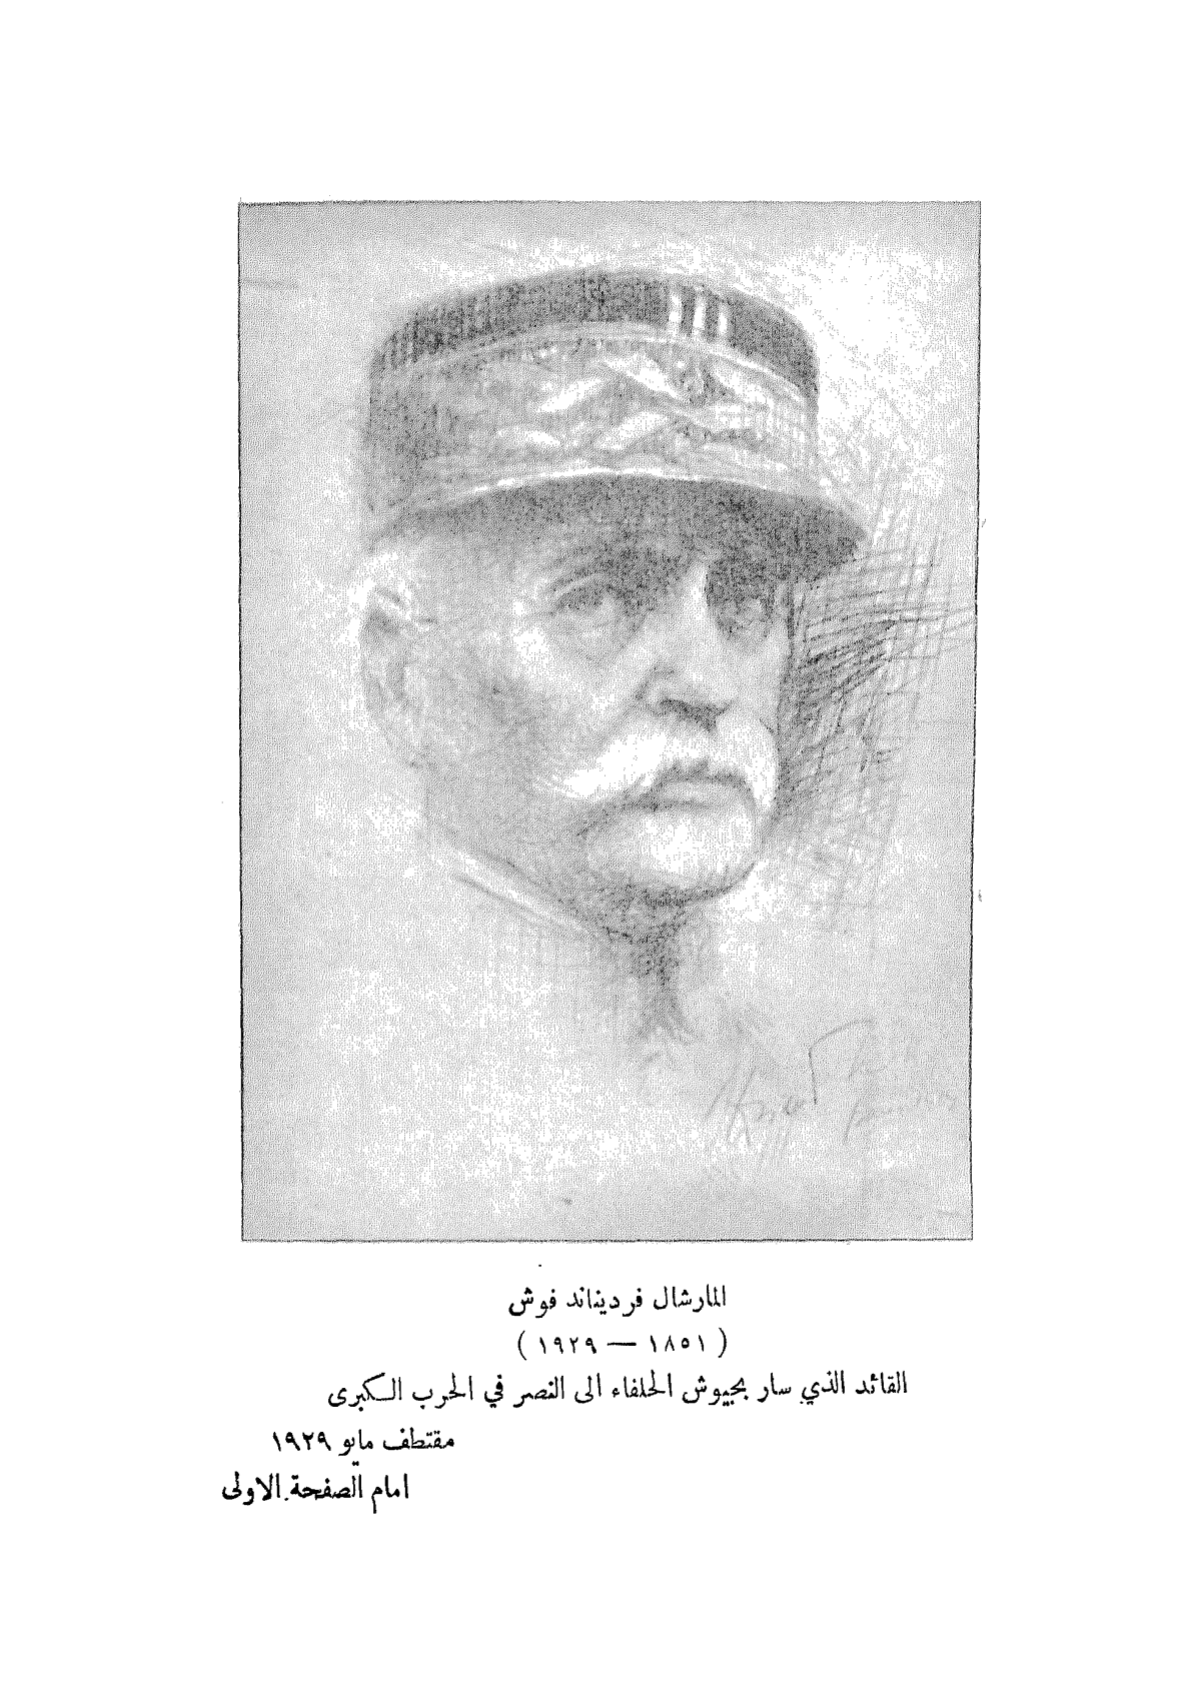 المارشال فرديناند فوش
( ١٨٥١ — ١٩٢٩ )
القائد الذي سار بجيوش الحلفاء الى النصر في الحرب الكبرى
مقتطف مايو ١٩٢٩
امام الصفحة الاولى